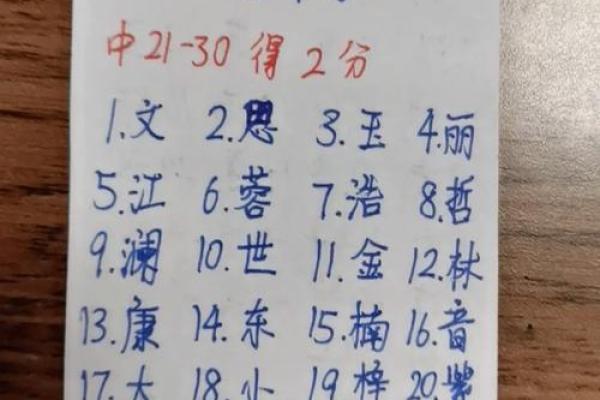 中21-30得2分
1.文 2.思 3.玉 4.丽
5.江 6.蓉 7.浩 8.哲
9.澜 10.世 11.金 12.林
13.康 14.东 15.楠 16.音
17.大 18.小 19.梓 20.紫